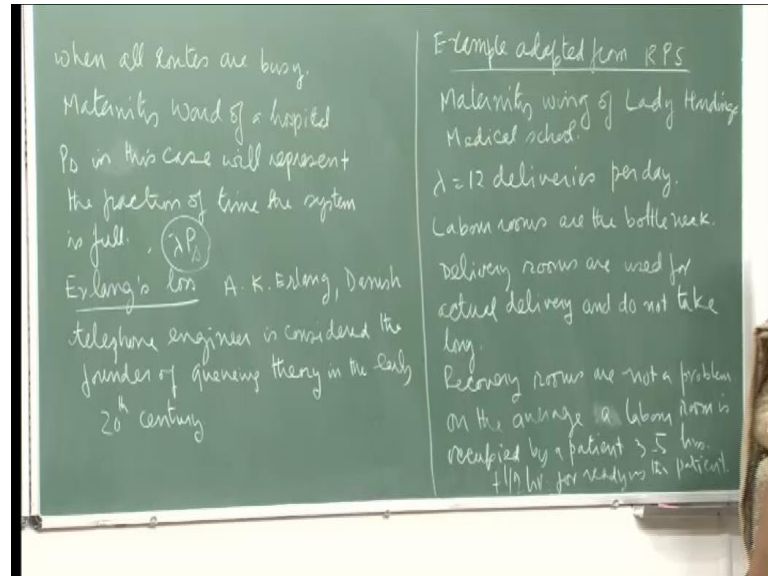 when all routes are busy.
Maternity Ward of a hospital
P_D in this case will represent
the fraction of time the system
is full. , λP_D
Erlang's loss A. K. Erlang, Danish
telephone engineer is considered the
founder of queueing theory in the early
20th century
Example adapted from RPS
Maternity wing of Lady Hardinge
Medical school.
λ = 12 deliveries per day.
Labour rooms are the bottleneck.
Delivery rooms are used for
actual delivery and do not take
long.
Recovery rooms are not a problem
on the average a labour room is
occupied by a patient 3.5 hrs.
hr for readying the patient.